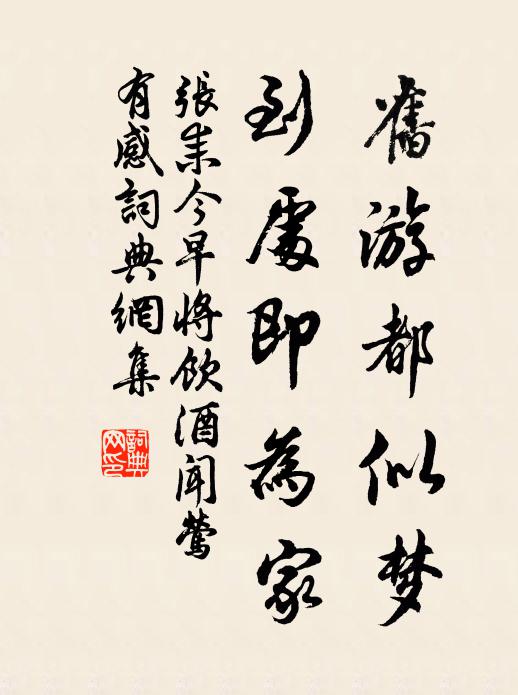 舊游都似梦
到處即為家
張耒今早将飲酒聞鶯
有感詞典網集
詞典
网印